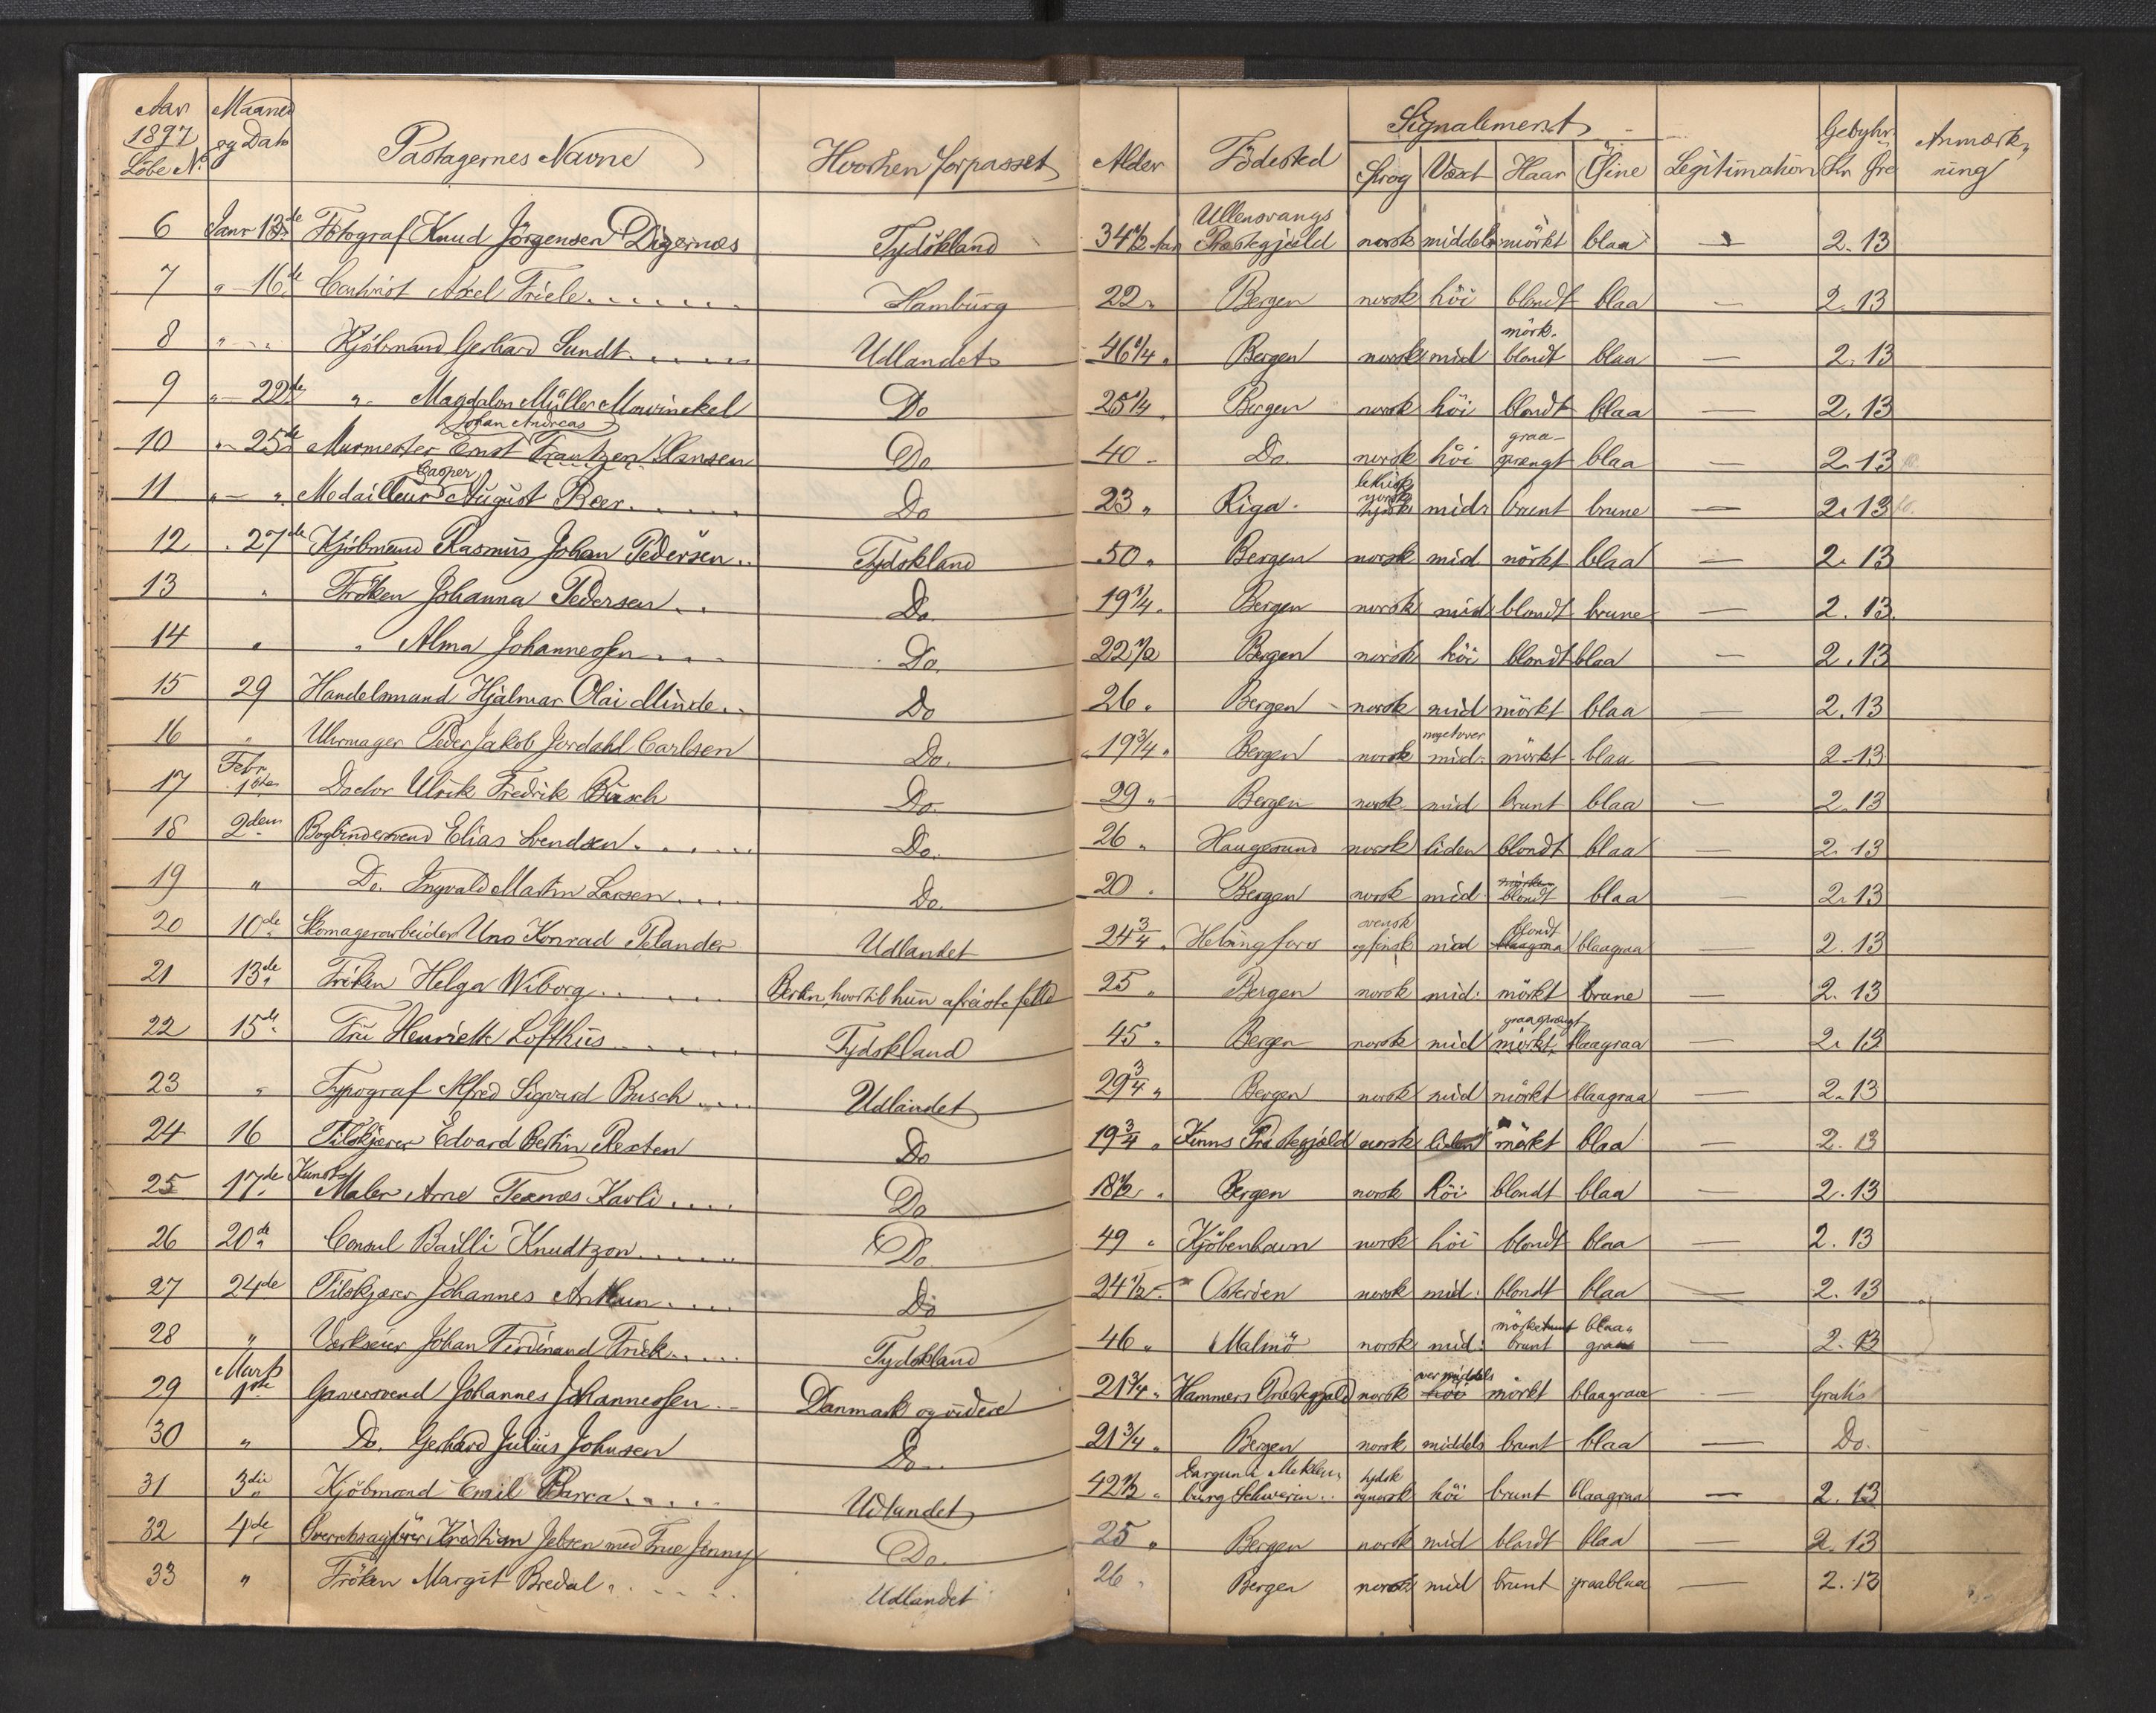 Aar 1897 Löbe No. Maaned og Dato Passagernes Navne Hvorhen forpasset Alder Födested Signalement Sprog Vext Haar Öine Legitimation Gebyhr Kr Öre Anmærkning
Ullensvangs
6 Janr 13de Fotograf Knud Jörgensen Digernæs Tydskland 34 1/2 Aar Præstegjæld norsk middels mörkt blaa — 2.13
7 " — 16de Axel Friele Hamburg 22 " Bergen norsk höi blondt blaa — 2.13
mörk.
8 " — " Kjöbmand Gerhard Sundt Udlandet 46 1/4 " Bergen norsk mid blondt blaa — 2.13
9 " — 22de " Magdalon Müller Mowinckel Do 25 1/4 " Bergen norsk höi blondt blaa — 2.13
Johan Andreas graa-
10 " — 25de Murmester Ernst Frantzen Hansen Do 40 - Do. norsk höi sprengt blaa — 2.13
Casper norsk
11 " — " Medailleur August Beer Do 23 " Riga. tydsk mid. brunt brune — 2.13
12 " 27de Kjöbmand Rasmus Johan Pedersen Tydskland 50 " Bergen norsk mid. mörkt blaa — 2.13
13 " Fröken Johanna Pedersen Do. 19 1/4 " Bergen norsk mid. blondt brune — 2.13.
14 " " Alma Johannessen Do. 22 1/2 Bergen norsk höi blondt blaa — 2.13
15 29 Handelsmand Hjalmar Olai Minde Do 26 " Bergen norsk mid mörkt blaa — 2.13
noget over
16 " Uhrmager Peder Jakob Jordahl Carlsen Do. 19 3/4 " Bergen norsk mid. mörkt blaa — 2.13
Febr
17 1ste Doctor Ulrik Fredrik Busch Do. 29 " Bergen norsk mid brunt blaa — 2.13
18 2den Bogbindersvend Elias Svendsen Do. 26 " Haugesund norsk liden blondt blaa — 2.13
mörke
19 " Do. Ingvald Martin Larsen Do. 20 " Bergen norsk mid blondt blaa — 2.13
svensk blondt
20 10de Skomagerarbeider Uno Konrad Pelander Udlandet 24 3/4 " Helsingfors og finsk mid blaagraa blaagraa — 2.13
21 13de Fröken Helga Wiborg Berlin, hvortil hun afreiste 25 " Bergen norsk mid. mörkt brune — 2.13
graasprengt
22 15de Fru Henriette Lofthus Tydskland 45 " Bergen norsk mid mörkt blaagraa — 2.13
23 " Typograf Alfred Sigvard Busch Udlandet 29 3/4 " Bergen norsk mid mörkt blaagraa — 2.13
24 16 Tilskjærer Edvard Bertin Rexten Do 19 3/4 " Kinns Præstegjæld norsk liden mörkt blaa — 2.13
Kunst
25 17de Maler Arne Texnes Kavli Do 18 1/2 " Bergen norsk höi blondt blaa — 2.13
26 20de Consul Bailli Knudtzon Do. 49 " Kjöbenhavn norsk höi blondt blaa — 2.13
27 24de Tilskjærer Johannes Arthun Do 24 1/2 " Osteröen norsk mid. blondt blaa — 2.13
mörke blaa-
28 " Værkseier Johan Ferdinand Frick Tydskland 46 " Malmö norsk mid. brunt graa — 2.13
Marts over middels
29 1ste Garversvend Johannes Johannessen Danmark og videre 21 3/4 " Hammers Præstegjæld norsk höi mörkt blaagraa — Gratis
30 " Do. Gerhard Julius Johnsen Do. 21 3/4 " Bergen norsk middels brunt blaa — Do.
Dargun i Meklen- tydsk
31 3die Kjöbmand Emil Barca Udlandet 42 1/2 " burg Schwerin og norsk höi brunt blaagraa — 2.13
32 4de Overretssagförer Kristian Jebsen med Frue Jenny Do. 25 " Bergen norsk mid blondt blaa — 2.13
33 " Fröken Margit Bredal Udlandet 26 " Bergen norsk mid brunt graablaa — 2.13